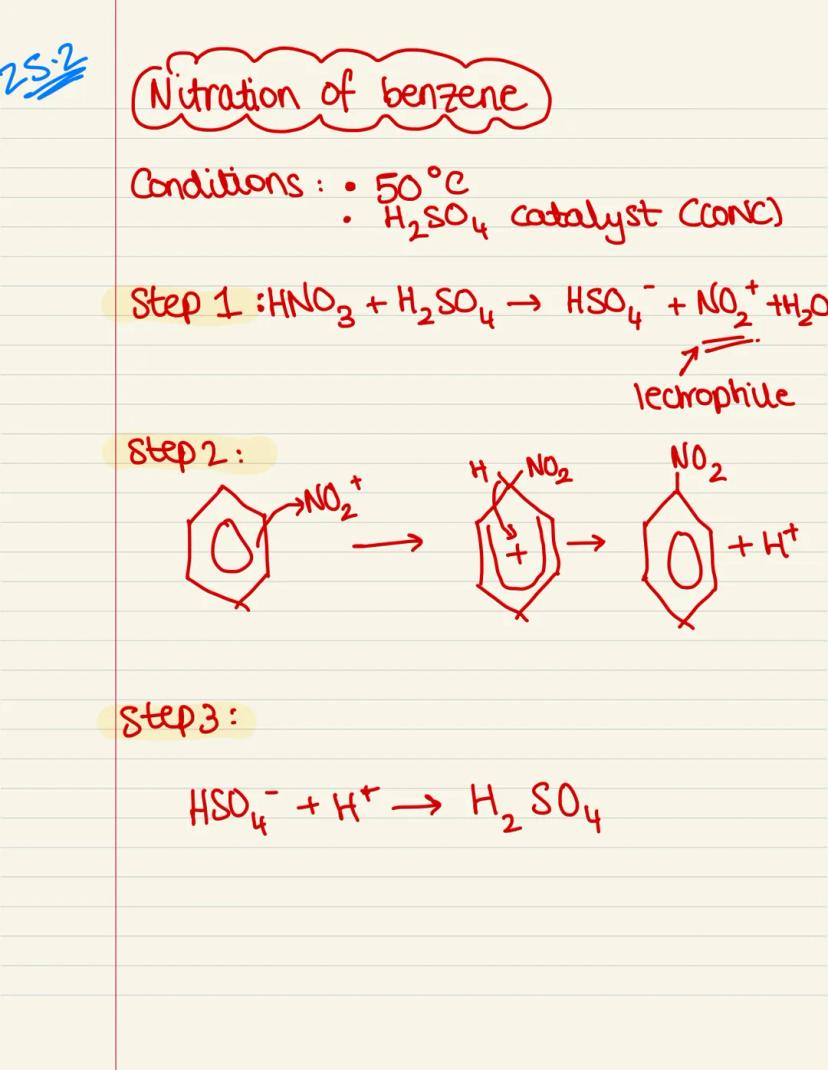 25.2
Nitration of benzene
Conditions : • 50°C
• H₂SO₄ catalyst (CONC)
Step 1 : HNO₃ + H₂SO₄ → HSO₄⁻ + NO₂⁺ + H₂O
lectrophile
Step 2 :
NO₂⁺ → H NO₂ + → NO₂ + H⁺
Step 3 :
HSO₄⁻ + H⁺ → H₂SO₄